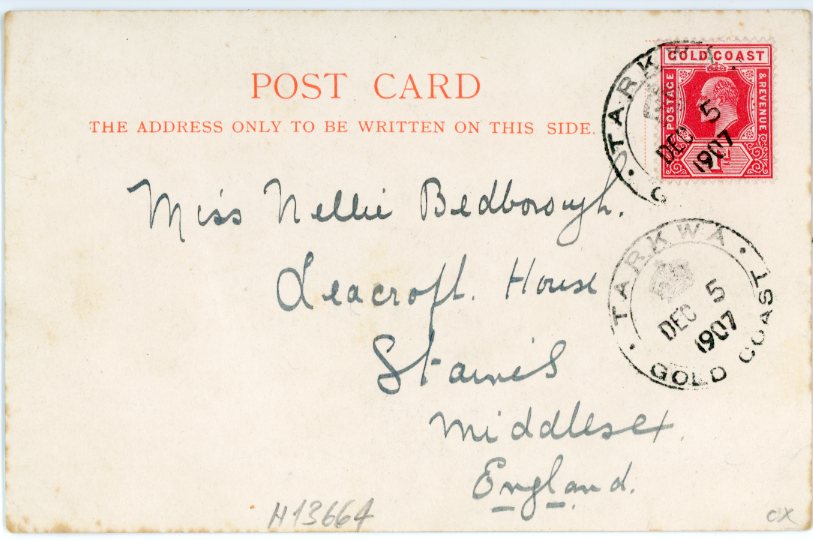 POST CARD
THE ADDRESS ONLY TO BE WRITTEN ON THIS SIDE.
GOLD COAST
POSTAGE
& REVENUE
TARKWA
DEC 5
1907
G
Miss Nellie Bedborough.
Leacroft. House
Staines
Middlesex.
England.
TARKWA
DEC 5
1907
GOLD COAST
H13664
cx